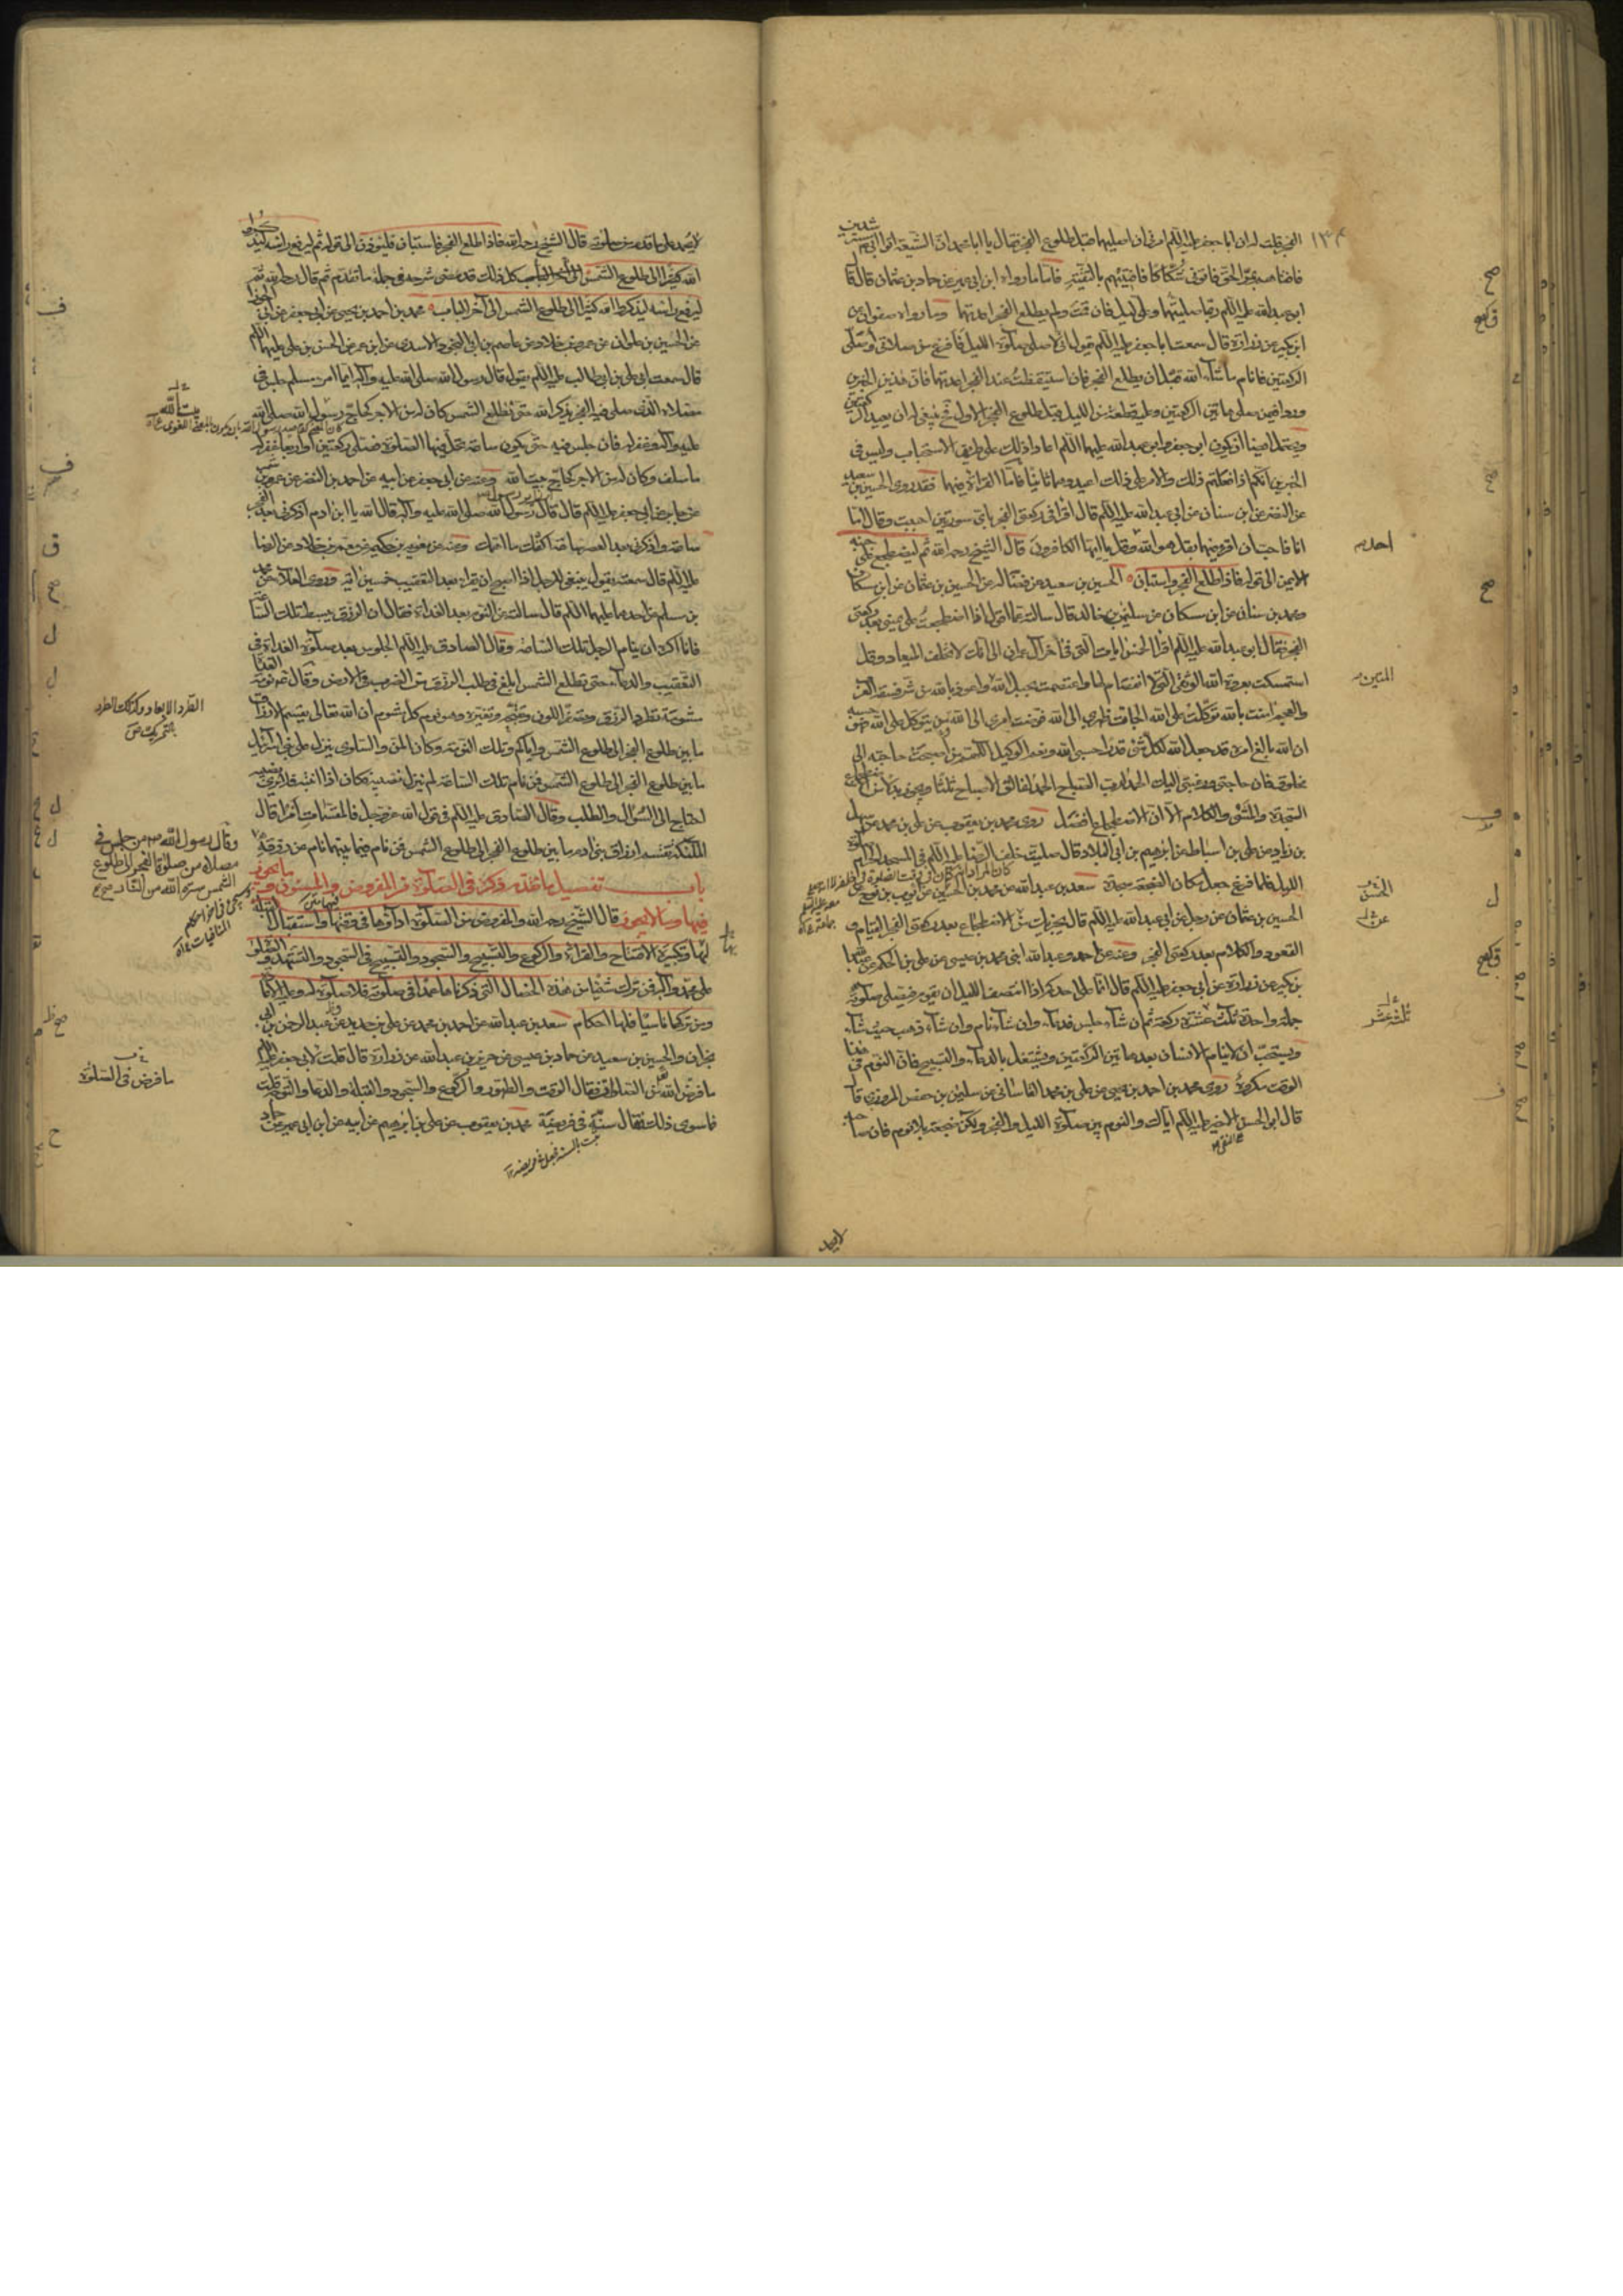 الفجر قلت له ان ابا جعفر عليه السلام امرنى ان اصليهما قبل طلوع الفجر فقال يا ابا محمد ان الشيعة اتوا ابى مسترشدين
فافتاهم بمر الحق فاتونى شكاكا فافتيتهم بالتقية فاما ما رواه ابن ابى عمير عن حماد بن عثمان قال قال
ابو عبد الله عليه السلام ربما صليتهما وعلى ليل فان قمت ولم يطلع الفجر اعدتهما وما رواه صفوان عن
ابن بكير عن زرارة قال سمعت ابا جعفر عليه السلام يقول انى لاصلى صلوة الليل فافرغ من صلاتى واصلى
الركعتين فانام ما شاء الله قبل ان يطلع الفجر فان استيقظت عند الفجر اعدتهما فان هذين الخبرين
وردا فيمن صلى هاتين الركعتين وعليه قطعة من الليل قبل طلوع الفجر الاول فحينئذ ينبغى له ان يعيد الركعتين
ويحتمل ايضا ان يكون ابو جعفر وابو عبد الله عليهما السلام اعادا ذلك على طريق الاستحباب وليس فى
الخبرين انكم اذا فعلتم ذلك والامر على ذلك اعيدوهما ثانيا فاما القراءة فيهما فقد روى الحسين بن سعيد
عن النضر عن ابن سنان عن ابى عبد الله عليه السلام قال اقرأ فى ركعتى الفجر باى سورتين احببت وقال اما
انا فاحب ان اقرء فيهما بقل هو الله وقل يا ايها الكافرون قال الشيخ رحمه الله ثم ليضطجع على جنبه
الايمن الى قوله فاذا طلع الفجر واستبان الحسين بن سعيد عن فضالة عن الحسين بن عثمان عن ابن مسكان
ومحمد بن سنان عن ابن مسكان عن سليمن بن خالد قال سالته عما اقول اذا اضطجعت على يمينى بعد ركعتى
الفجر فقال ابو عبد الله عليه السلام اقرأ الخمس ايات التى فى اخر آل عمران الى انك لا تخلف الميعاد وقل
استمسكت بعروة الله الوثقى التى لا انفصام لها واعتصمت بحبل الله واعوذ بالله من شر فسقة العرب
والعجم امنت بالله توكلت على الله الجات ظهرى الى الله فوضت امرى الى الله من يتوكل على الله فهو حسبه
ان الله بالغ امره قد جعل الله لكل شئ قدرا حسبى الله ونعم الوكيل اللهم من اصبحت حاجته الى
مخلوق فان حاجتى ورغبتى اليك الحمد لرب الصباح الحمد لفالق الاصباح ثلثا ويجوز بدلا من الاضطجاع
السجدة والمشى والكلام الا ان الاضطجاع افضل روى محمد بن يعقوب عن على بن محمد عن سهل
بن زياد عن على بن اسباط عن ابرهيم بن ابى البلاد قال صليت خلف الرضا عليه السلام فى المسجد الحرام صلوة
الليل فلما فرغ جعل مكان الضجعة سجدة سعد بن عبد الله عن محمد بن الحسين عن ايوب بن نوح عن
الحسين بن عثمان عن رجل عن ابى عبد الله عليه السلام قال يجزيك من الاضطجاع بعد ركعتى الفجر القيام و
القعود والكلام بعد ركعتى الفجر وعنه عن احمد وعبد الله ابنى محمد بن عيسى عن على بن الحكم عن عبد الله
بن بكير عن زرارة عن ابى جعفر عليه السلام قال انما على احدكم اذا انتصف الليل ان يقوم فيصلى صلوته
جملة واحدة ثلث عشرة ركعة ثم ان شاء جلس فدعا وان شاء نام وان شاء ذهب حيث شاء
ويستحب ان لا ينام الانسان بعد هاتين الركعتين ويشتغل بالدعاء والتسبيح فان النوم فى هذا
الوقت مكروه روى محمد بن احمد بن يحيى عن على بن محمد القاسانى عن سليمن بن حفص المروزى قال
قال ابو الحسن الاخير عليه السلام اياك والنوم بين صلوة الليل والفجر ولكن ضجعة بلا نوم فان صاحبه
لا يحمد
١٣٤
صح
احديهم
صح
المتين
الحسن
ثلثة عشر
لا يحمد على ما قدم من صلوته قال الشيخ رحمه الله فاذا طلع الفجر فاستبان فليؤذن الى قوله ثم ليرفع راسه ليذكر
الله كثيرا الى طلوع الشمس الى آخر الباب كل ذلك قد مضى شرحه فى جملة ما تقدم ثم قال رحمه الله ثم
ليرفع راسه ليذكر الله كثيرا الى طلوع الشمس الى آخر الباب محمد بن احمد بن يحيى عن ابى جعفر عن ابى الجوزا
عن الحسين بن علوان عن عمرو بن خالد عن عاصم بن ابى النجود الاسدى عن ابن عمر عن الحسن بن على عليهما السلم
قال سمعت ابى على بن ابى طالب عليه السلام يقول قال رسول الله صلى الله عليه وآله ايما امرء مسلم جلس فى
مصلاه الذى صلى فيه الفجر يذكر الله حتى تطلع الشمس كان له من الاجر كحاج رسول الله صلى الله
عليه وآله وغفر له فان جلس فيه حتى يكون ساعة تحل فيها الصلوة فصلى ركعتين او اربعا غفر له
ما سلف وكان له من الاجر كحاج بيت الله وعنه عن ابى جعفر عن ابيه عن احمد بن النضر عن عمرو بن شمر
عن جابر عن ابى جعفر عليه السلام قال قال رسول الله صلى الله عليه وآله قال الله يا ابن ادم اذكرنى بعد الفجر
ساعة واذكرنى بعد العصر ساعة اكفك ما اهمك وعنه عن معوية بن حكيم عن معمر بن خلاد عن الرضا
عليه السلام قال سمعته يقول ينبغى للرجل اذا اصبح ان يقراء بعد التعقيب خمسين آية وروى العلاء عن محمد
بن مسلم عن احدهما عليهما السلام قال سالته عن النوم بعد الغداة فقال ان الرزق يبسط تلك الساعة
فانا اكره ان ينام الرجل تلك الساعة وقال الصادق عليه السلام الجلوس بعد صلوة الغداة فى
التعقيب والدعاء حتى تطلع الشمس ابلغ فى طلب الرزق من الضرب فى الارض وقال نومة الغداة
مشومة تطرد الرزق وتصفر اللون وتقبحه وتغيره وهو نوم كل شوم ان الله تعالى يقسم الارزاق
ما بين طلوع الفجر الى طلوع الشمس واياكم وتلك النومة وكان المن والسلوى ينزل على بنى اسرائيل
ما بين طلوع الفجر الى طلوع الشمس فمن نام تلك الساعة لم ينزل نصيبه فكان اذا انتبه فلا يرى نصيبه
احتاج الى السؤال والطلب وقال الصادق عليه السلام فى قول الله عز وجل فالمقسمات امرا قال
الملئكة تقسم ارزاق بنى ادم ما بين طلوع الفجر الى طلوع الشمس فمن نام فيما بينهما نام عن رزقه
باب تفصيل ما تقدم ذكره فى الصلوة من المفروض والمسنون وما يجوز
فيها وما لا يجوز قال الشيخ رحمه الله والمفروض من الصلوة اداؤها فى وقتها واستقبال القبلة
لها وتكبيرة الافتتاح والقراءة والركوع والتسبيح والسجود والتسبيح فى السجود والتشهد والصلوة
على محمد وآله فمن ترك شيئا من هذه الخصال التى ذكرناها عمدا فى صلوته فلا صلوة له وعليه الاعادة
ومن تركها ناسيا فلها احكام سعد بن عبد الله عن احمد بن محمد عن على بن حديد وعبد الرحمن بن ابى
نجران والحسين بن سعيد عن حماد بن عيسى عن حريز بن عبد الله عن زرارة قال قلت لابى جعفر عليه السلام
ما فرض الله من الصلوة فقال الوقت والطهور والركوع والسجود والقبلة والدعا والتوجه قلت
فما سوى ذلك فقال سنة فى فريضة محمد بن يعقوب عن على بن ابرهيم عن ابيه عن ابن ابى عمير عن حماد
بيت الله
الطرد الابعاد وكذلك الطرد
بالتحريك ص
وقال رسول الله ص من جلس فى
مصلاه من صلوة الفجر الى طلوع
الشمس ستره الله من النار صح
ما فرض فى الصلوة